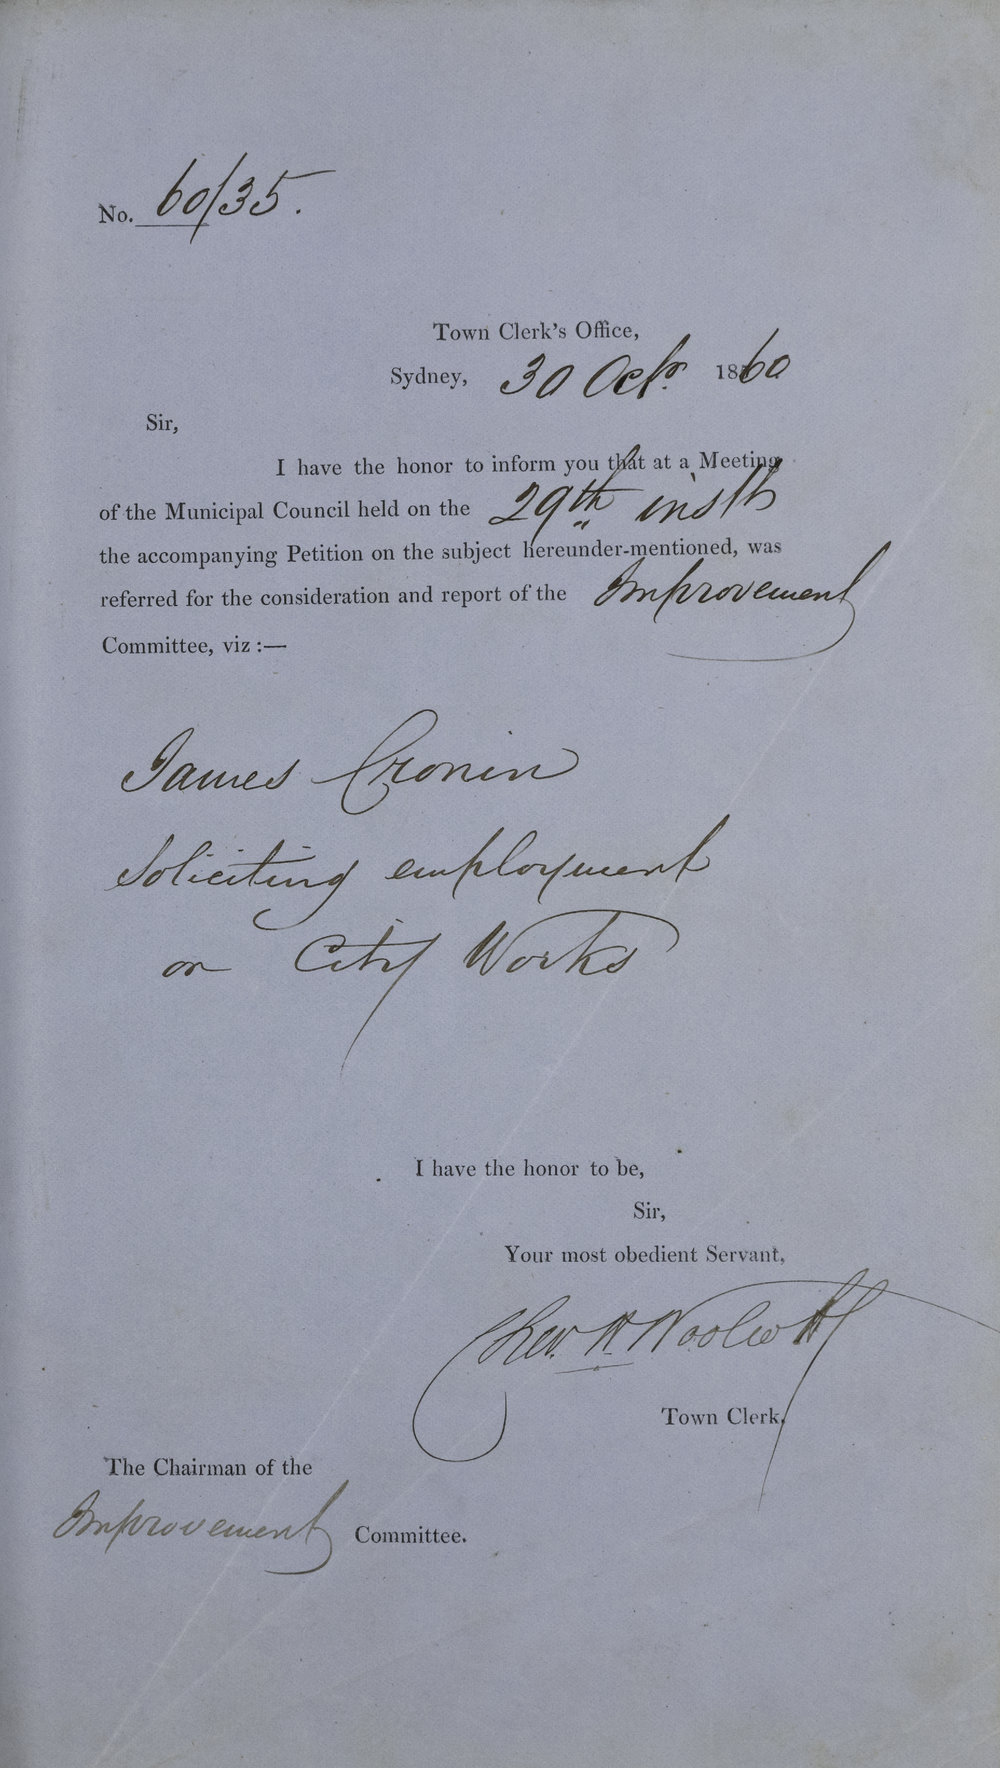 No. 60/35.
Town Clerk's Office,
Sydney, 30 Octr. 1860
Sir,
I have the honor to inform you that at a Meeting
of the Municipal Council held on the 29th instt
the accompanying Petition on the subject hereunder-mentioned, was
referred for the consideration and report of the Improvement
Committee, viz :—
James Cronin
Soliciting employment
on City Works
I have the honor to be,
Sir,
Your most obedient Servant,
Chas. H. Woolcott
Town Clerk.
The Chairman of the
Improvement Committee.